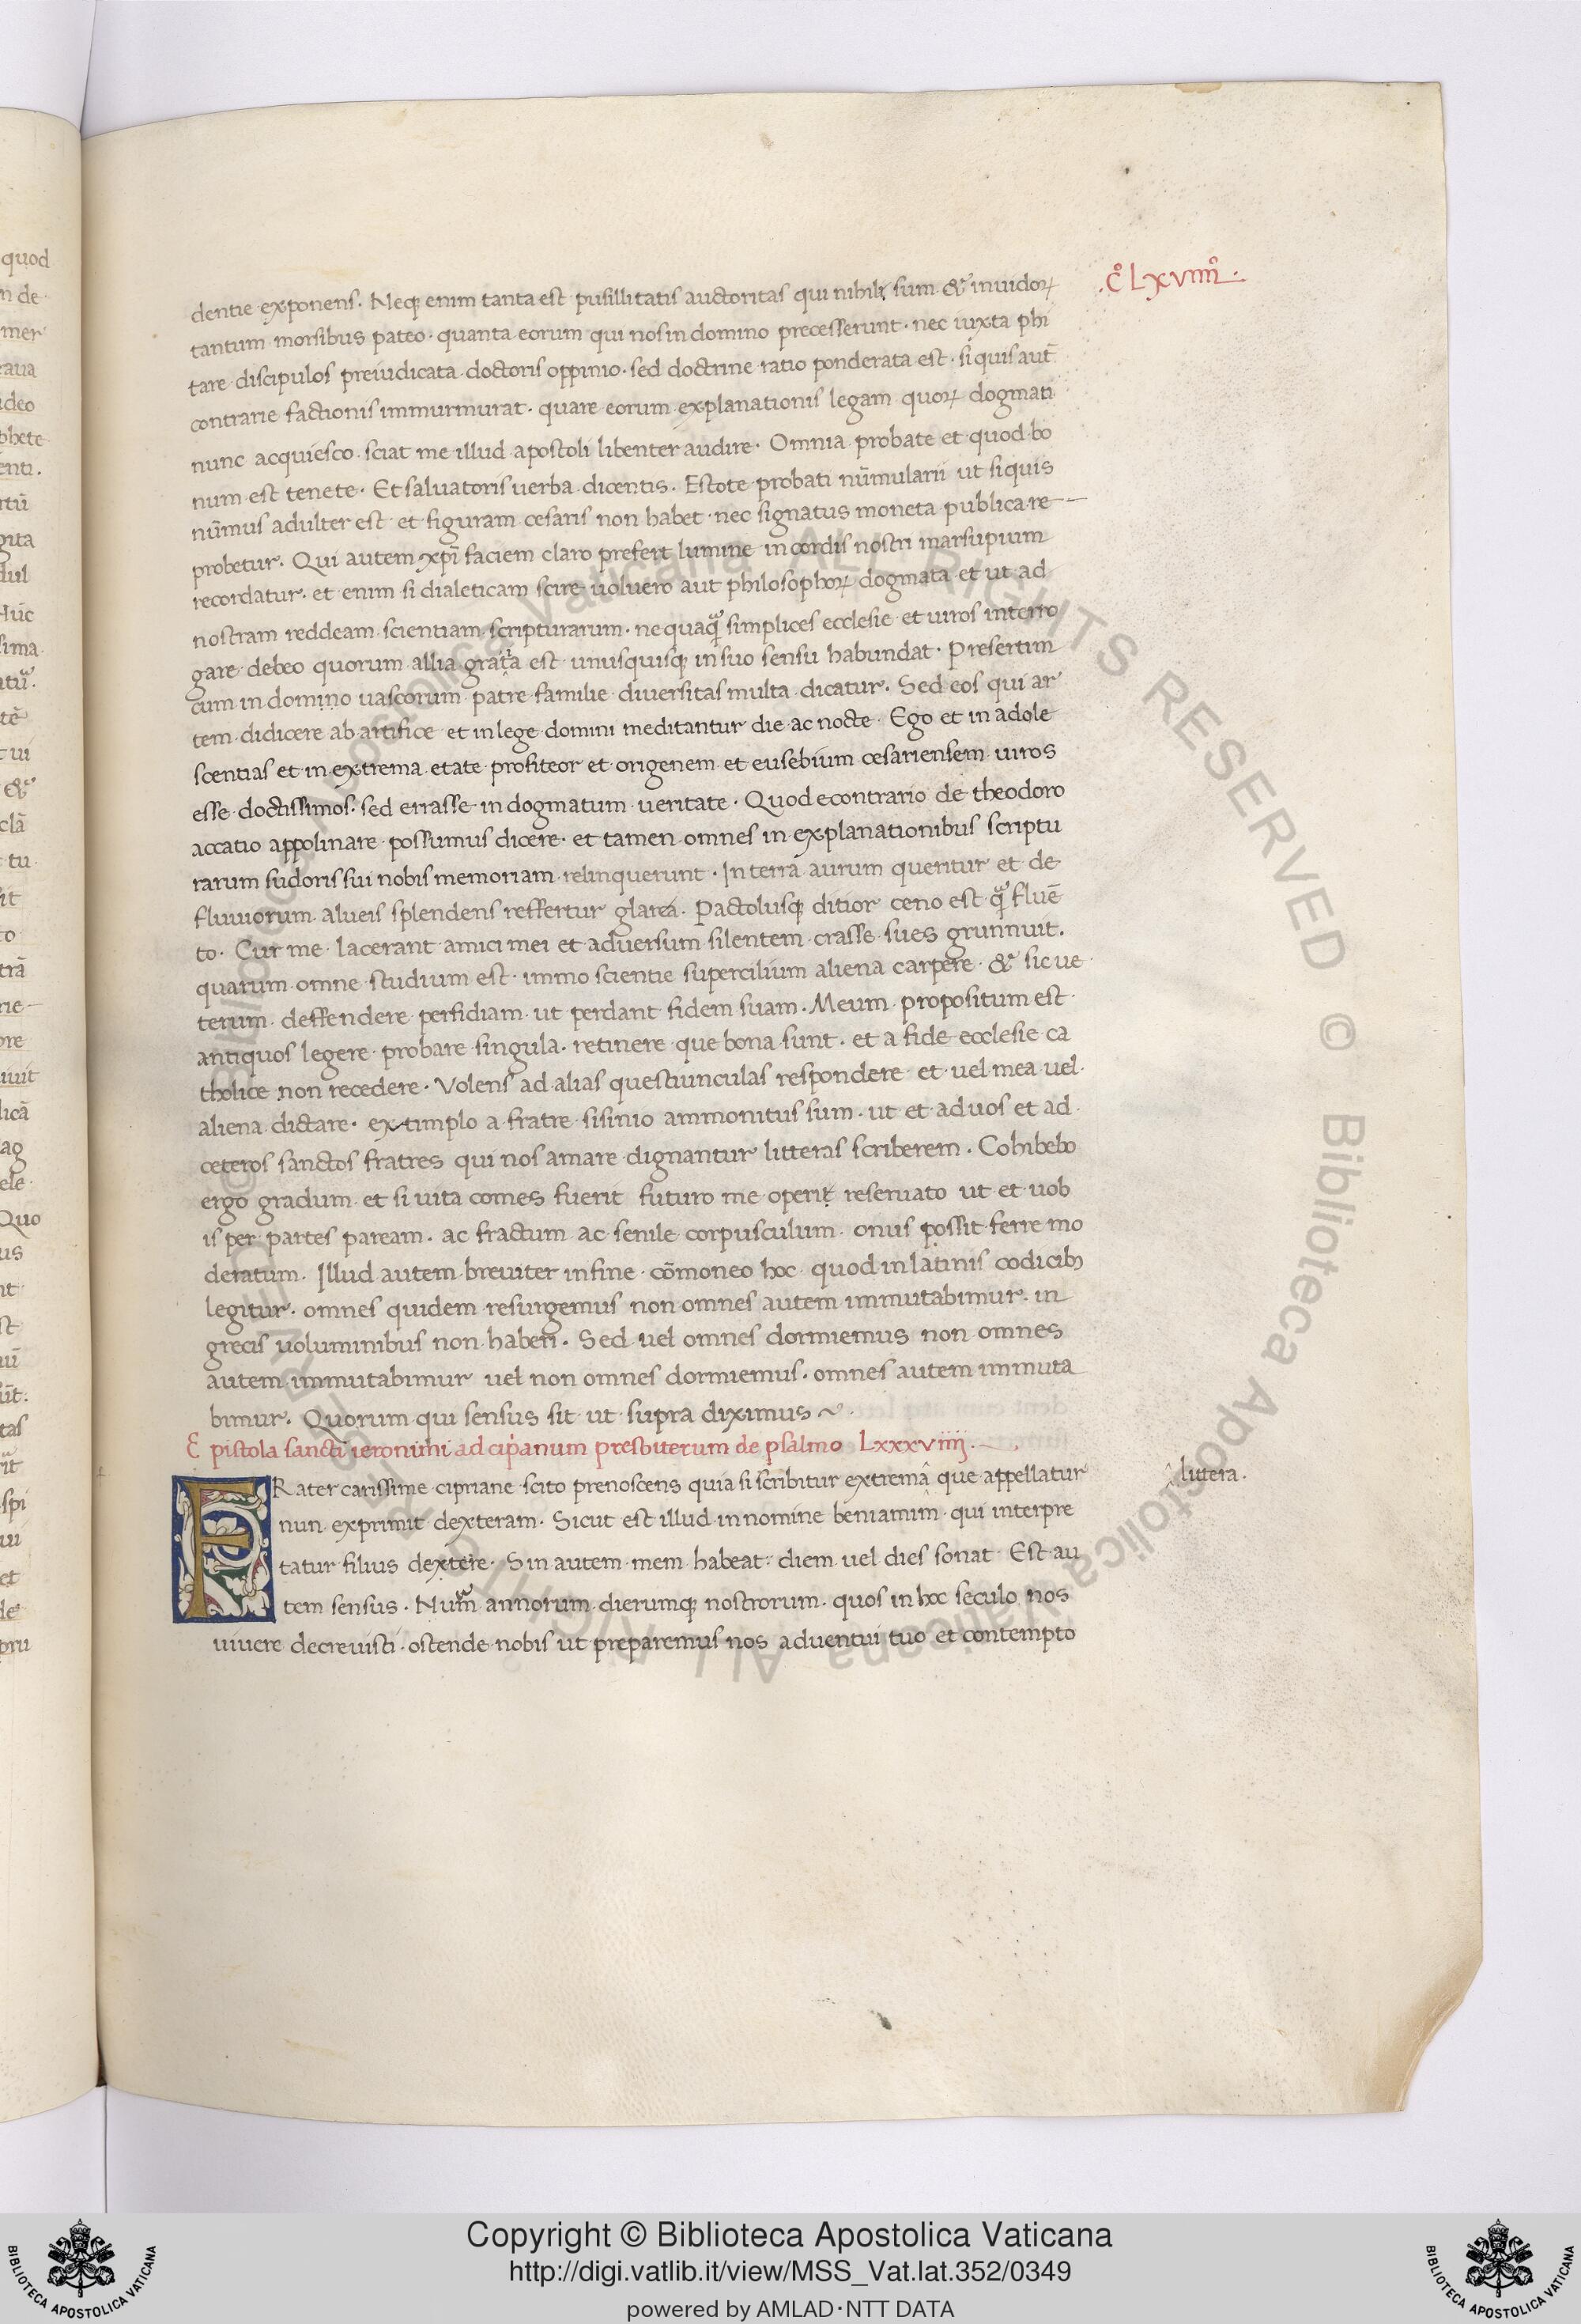 .C̊ Lxviiii̊.
dentie exponens. Neq; enim tanta est pusillitatis auctoritas qui nihili sum & inuidoꝝ
tantum morsibus pateo. quanta eorum qui nos in domino precesserunt. nec iuxta phi
tare discipulos preiudicata doctoris oppinio. sed doctrine ratio ponderata est. si quis aut̄
contrarie factionis immurmurat. quare eorum explanationis legam quoꝝ dogmati
nunc acquiesco. sciat me illud apostoli libenter audire. Omnia probate et quod bo
num est tenete. Et saluatoris uerba dicentis. Estote probati nūmularii ut siquis
nūmus adulter est et figuram cesaris non habet. nec signatus moneta publica re
probetur. Qui autem xp̄i faciem claro prefert lumine in cordis nostri marsupium
recordatur. et enim si dialeticam scire uoluero aut philosophoꝝ dogmata et ut ad
nostram reddeam scientiam scripturarum. nequaq̄ simplices ecclesie et uiros interro
gare debeo quorum allia grat̂ia est unusquisq; in suo sensu habundat. Presertim
cum in domino uascorum patre familie diuersitas multa dicatur. Sed eos qui ar
tem didicere ab artifice et in lege domini meditantur die ac nocte. Ego et in adole
scentias et in extrema etate profiteor et origenem et eusebium cesariensem uiros
esse doctissimos. sed errasse in dogmatum ueritate. Quod econtrario de theodoro
accatio appolinare possumus dicere. et tamen omnes in explanationibus scriptu
rarum sudoris sui nobis memoriam relinquerunt. In terra aurum queritur et de
fluuiorum alueis splendens reffertur glarea. Pactolusq; ditior ceno est q̄ fluē
to. Cur me lacerant amici mei et aduersum silentem crasse sues grunnuit.
quarum omne studium est. immo scientie supercilium aliena carpere. & sic ue
terum deffendere perfidiam ut perdant fidem suam. Meum propositum est
antiquos legere probare singula. retinere que bona sunt. et a fide ecclesie ca
tholice non recedere. Volens ad alias questiunculas respondere et uel mea uel
aliena dictare. extimplo a fratre sisinio ammonitus sum. ut et ad uos et ad
ceteros sanctos fratres qui nos amare dignantur litteras scriberem. Cohibebo
ergo gradum et si uita comes fuerit futuro me operit reseruato ut et uob
is per partes paream. ac fractum ac senile corpusculum onus possit ferre mo
deratum. Illud autem breuiter in fine cōmoneo hoc quod in latinis codicib;
legitur. omnes quidem resurgemus non omnes autem immutabimur. in
grecis uoluminibus non haberi. Sed uel omnes dormiemus non omnes
autem immutabimur uel non omnes dormiemus. omnes autem immuta
bimur. Quorum qui sensus sit ut supra diximus ~.
Epistola sancti ieronimi ad cip̄anum presbiterum de psalmo Lxxxviiij.
FRater carissime cipriane scito prenoscens quia si scribitur extrema^ que appellatur
^ littera.
nun exprimit dexteram. Sicut est illud in nomine beniamim qui interpre
tatur filius dextere. Sin autem mem habeat: diem uel dies sonat. Est au
tem sensus. Num̄ annorum dierumq; nostrorum. quos in hoc seculo nos
uiuere decreuisti. ostende nobis ut preparemus nos aduentui tuo et contempto
Copyright © Biblioteca Apostolica Vaticana
http://digi.vatlib.it/view/MSS_Vat.lat.352/0349
powered by AMLAD·NTT DATA